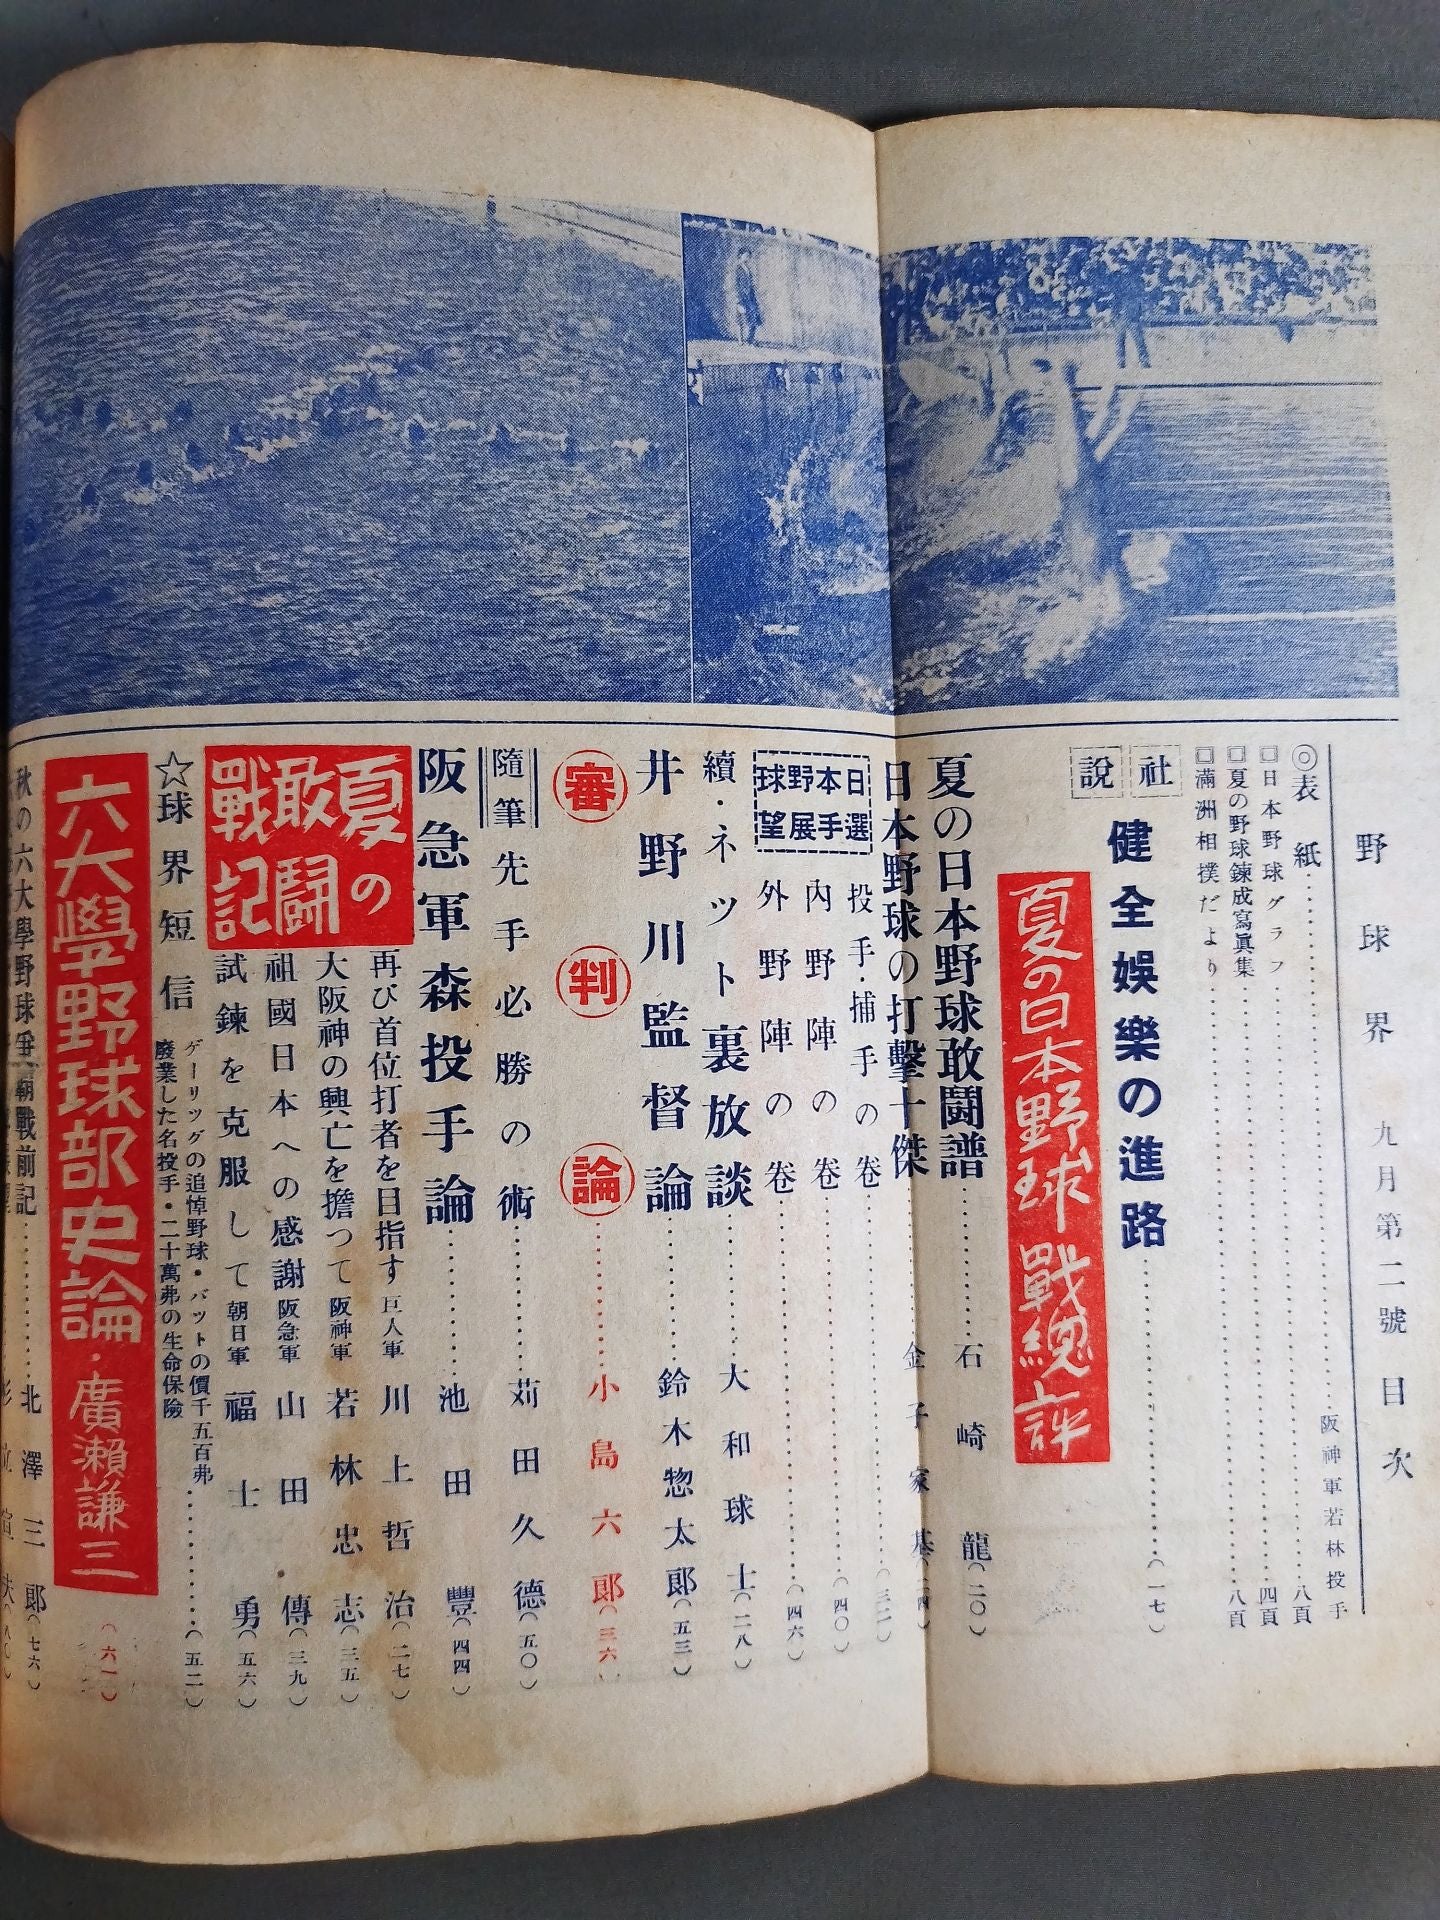 野球界 九月第二號 目次
◎表紙……阪神軍若林投手
□日本野球グラフ……八頁
□夏の野球鍊成寫眞集……四頁
□滿洲相撲だより……八頁
社說 健全娛樂の進路……(一七)
夏の日本野球戰總評
夏の日本野球敢鬪譜……石崎龍(二〇)
日本野球の打擊十傑……金子家基(二四)
日本野球選手展望
投手・捕手の卷……(三二)
內野陣の卷……(四〇)
外野陣の卷……(四六)
續・ネット裏放談……大和球士(二八)
井野川監督論……鈴木惣太郞(五三)
審判論……小島六郞(三六)
隨筆 先手必勝の術……苅田久德(五〇)
阪急軍森投手論……池田豐(四四)
夏の敢鬪戰記
再び首位打者を目指す 巨人軍 川上哲治(二七)
大阪神の興亡を擔つて 阪神軍 若林忠志(三五)
祖國日本への感謝 阪急軍 山田傳(三九)
試鍊を克服して 朝日軍 福士勇(五六)
☆球界短信
ゲーリッグの追悼野球・バットの價千五百弗……(五二)
廢業した名投手・二十萬弗の生命保險
六大學野球部史論・廣瀨謙三(六一)
秋の六大學野球爭霸戰前記……北澤三郞(七六)